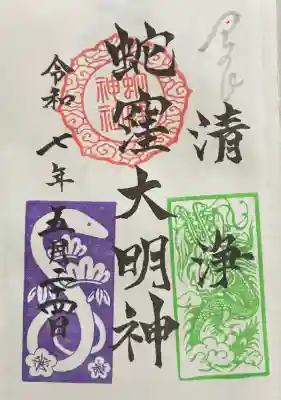 清浄
蛇窪大明神
蛇窪神社
令和七年
五月二四日